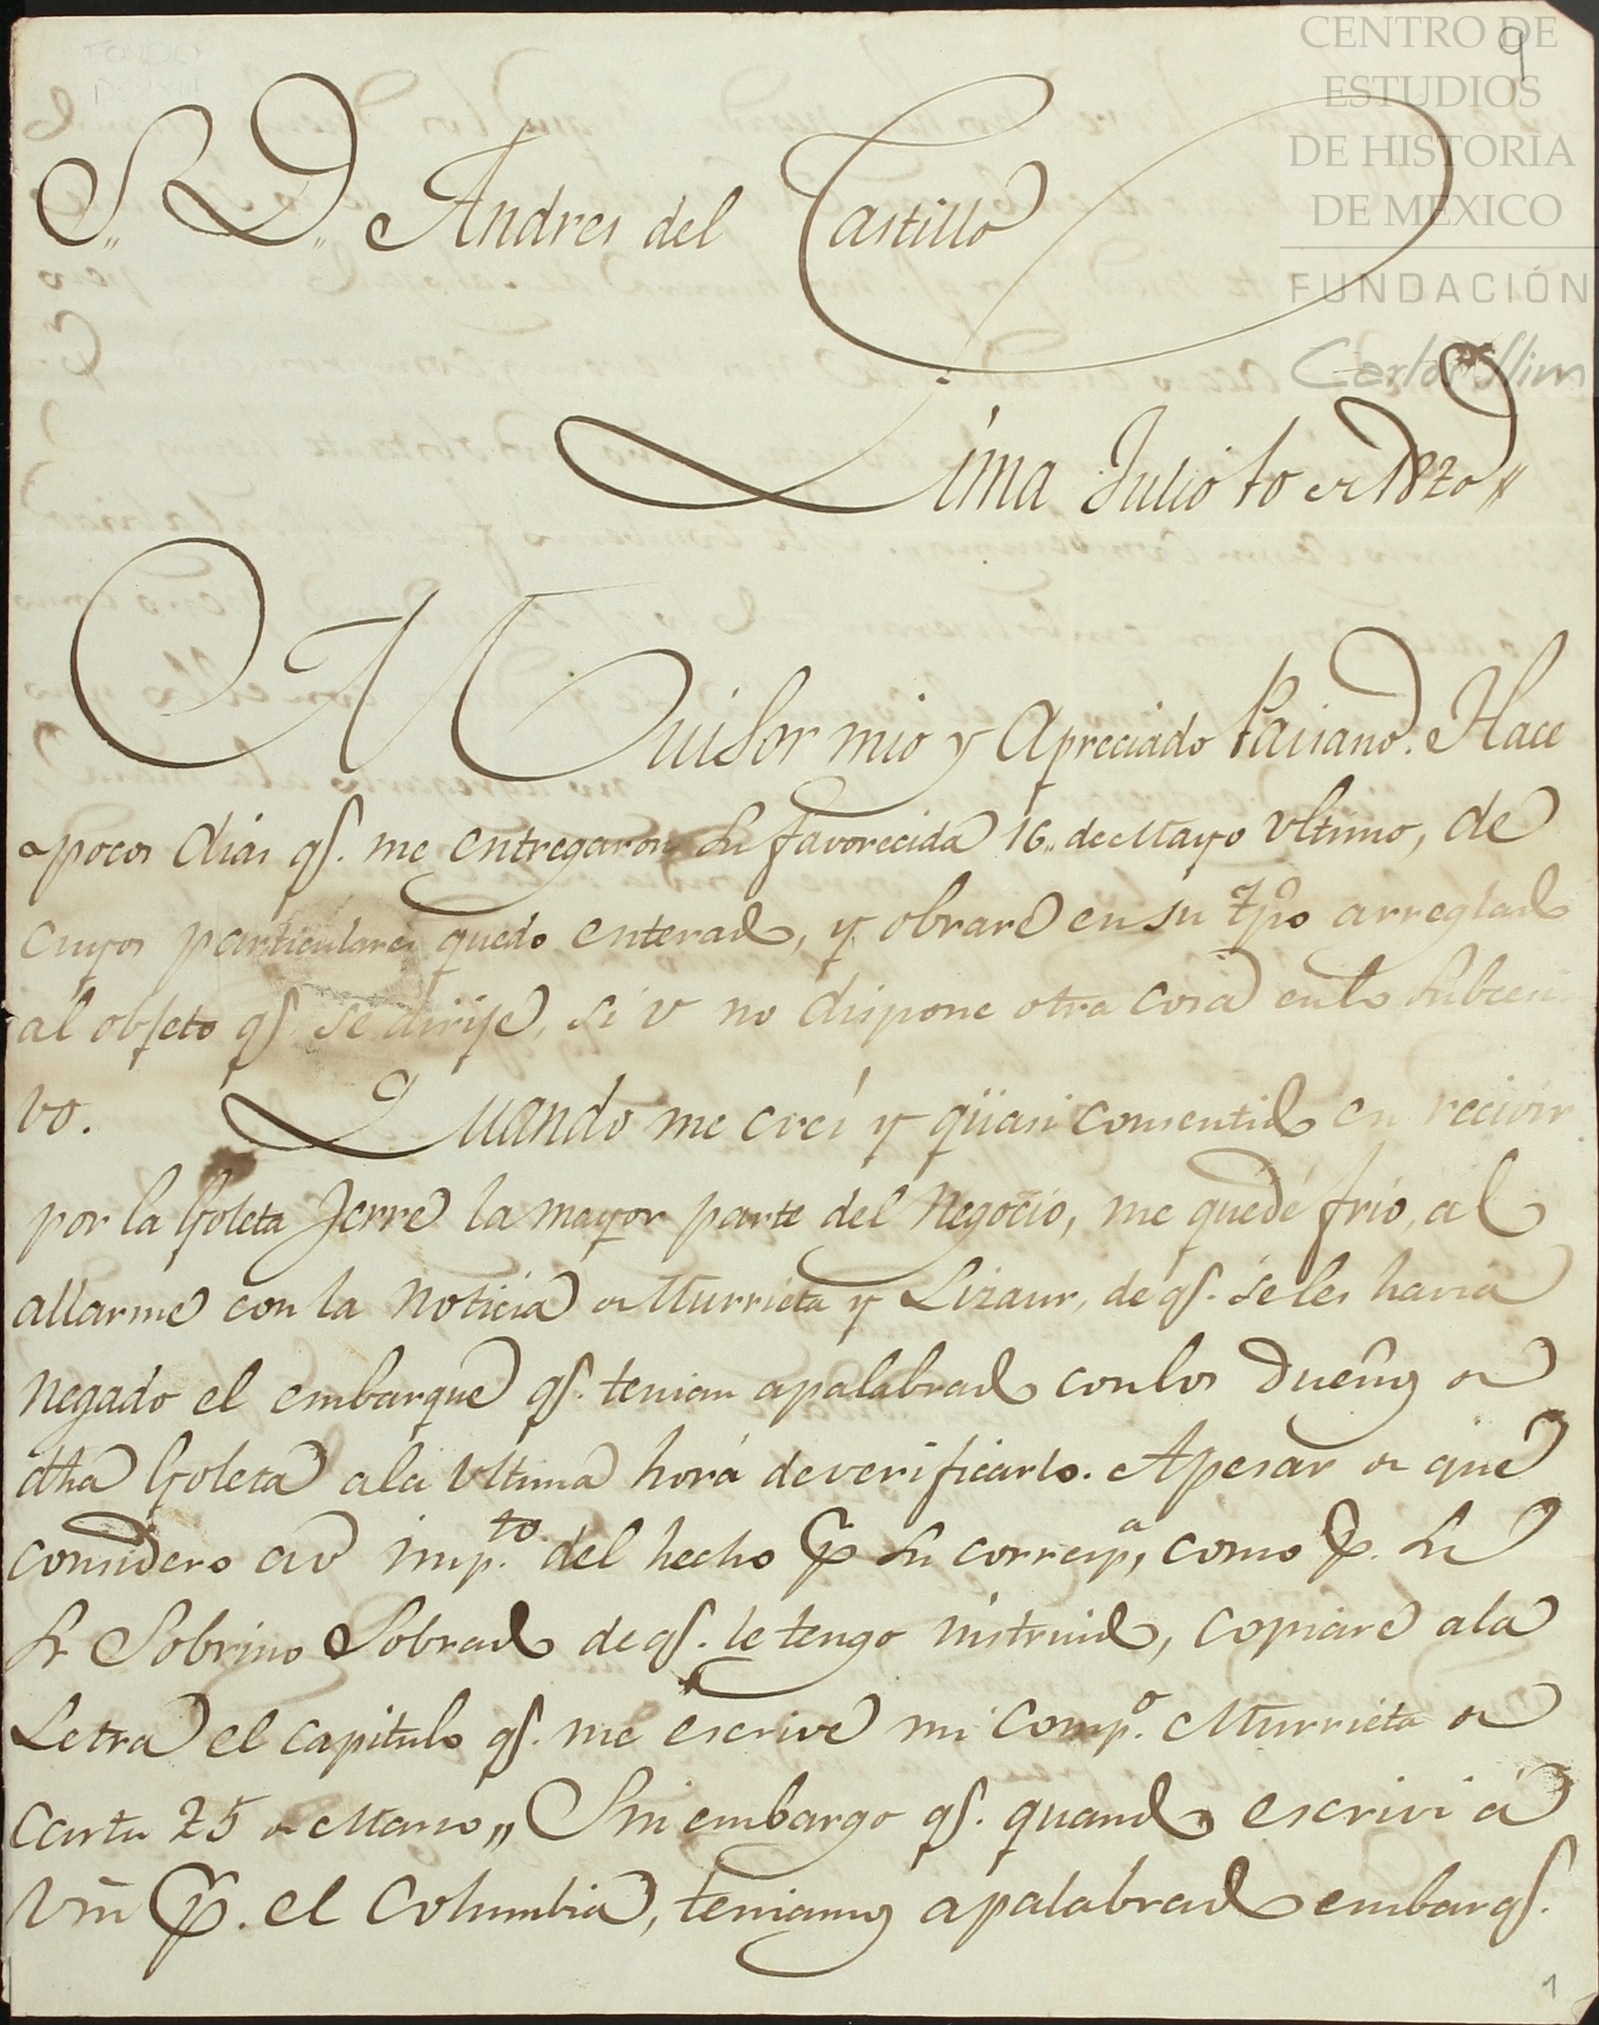 CENTRO DE
ESTUDIOS
DE HISTORIA
DE MEXICO
FUNDACIÓN
Carlos Slim
9
S.. D.. Andres del Castillo
Lima Julio 10 de 1820,,
Mui Sor mio y Apreciado Paisano. Hace
pocos dias qe. me entregaron su favorecida 16.. de Mayo Ultimo, de
cuyos particulares quedo enterado, y obraré en su tpo arreglado
al objeto qe se dirije, si V no dispone otra cosa en lo subcesi
vo. Quando me creí y qüasi consentido en recivir
por la Goleta Jerre la mayor parte del Negocio, me quedé frio, al
allarme con la Noticia de Murrieta y Lizaur, de qe. se les havia
negado el embarque qe. tenian apalabrado con los Dueños de
dha Goleta a la Ultima hora de verificarlo. Apesar de que
considero a V imp.to del hecho p su corresp.a, como p. su
Sr Sobrino Sobrado de qe. le tengo instruido, copiaré a la
Letra el capitulo qe. me escrive mi comp.o Murrieta de
Carta 25 de Marzo,, Sin embargo qe. quando escrivi á
Vm p. el Columbia, teniamos apalabrado embarqe.
1